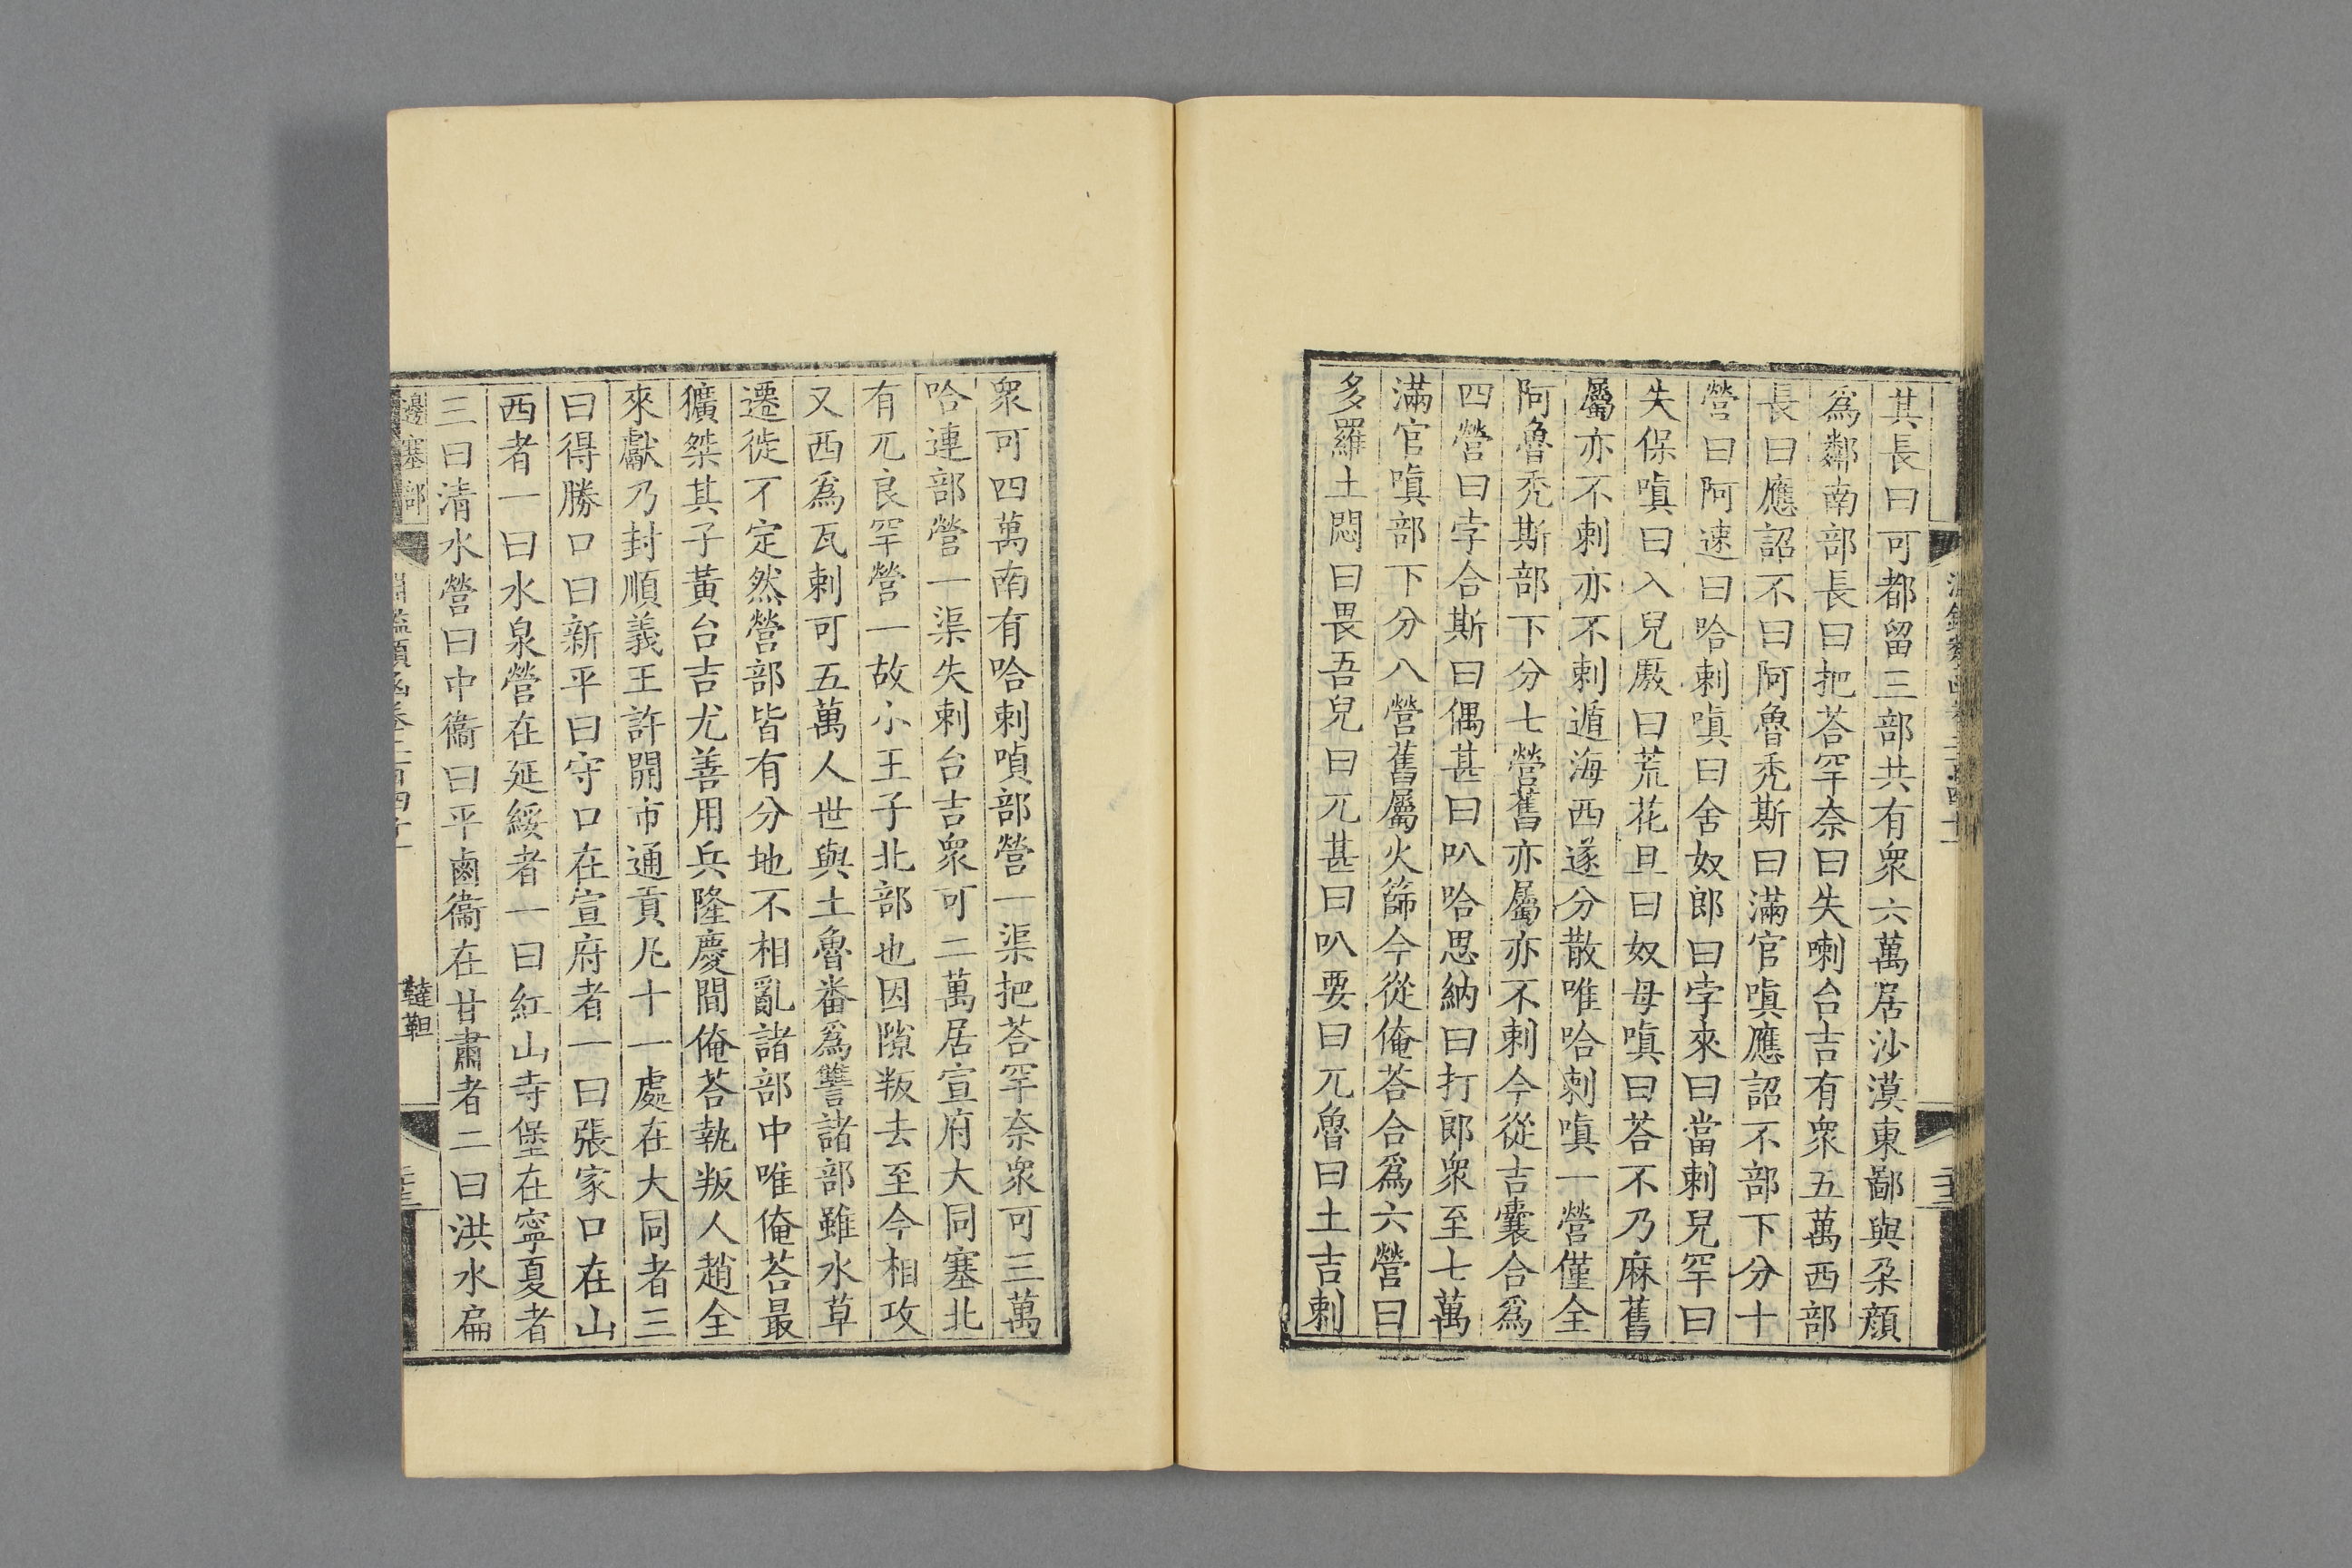 其長曰可都留三部共有衆六萬居沙漠東鄙與朶顔
爲鄰南部長曰把荅罕奈曰失喇台吉有衆五萬西部
長曰應詔不曰阿魯秃斯曰滿官嗔應詔不部下分十
營曰阿速曰哈剌嗔曰舍奴郎曰孛來曰當剌兒罕曰
失保嗔曰入兒厫曰荒花旦曰奴母嗔曰荅不乃麻舊
屬亦不剌亦不剌遁海西遂分散唯哈剌嗔一營僅全
阿魯秃斯部下分七營舊亦屬亦不剌今從吉囊合爲
四營曰孛合斯曰偶甚曰叭哈思納曰打郎衆至七萬
滿官嗔部下分八營舊屬火篩今從俺荅合爲六營曰
多羅土悶曰畏吾兒曰兀甚曰叭要曰兀魯曰土吉剌
衆可四萬南有哈剌嗔部營一渠把荅罕奈衆可三萬
哈連部營一渠失剌台吉衆可二萬居宣府大同塞北
有兀良罕營一故小王子北部也因隙叛去至今相攻
又西爲瓦剌可五萬人世與土魯番爲讐諸部雖水草
遷徙不定然營部皆有分地不相亂諸部中唯俺荅最
獷桀其子黃台吉尤善用兵隆慶間俺荅執叛人趙全
來獻乃封順義王許開市通貢凡十一處在大同者三
曰得勝口曰新平曰守口在宣府者一曰張家口在山
西者一曰水泉營在延綏者一曰紅山寺堡在寧夏者
三曰清水營曰中衞曰平鹵衞在甘肅者二曰洪水扁
邊塞部
韃靼